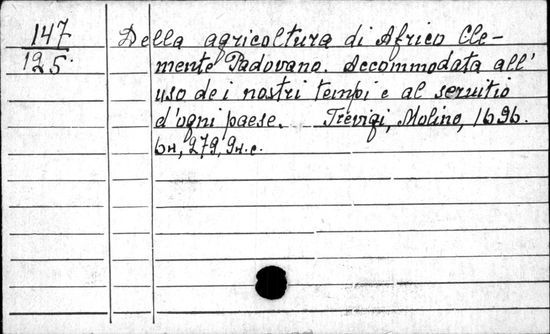 147
125.
Della agricoltura di Africo Cle-
mente Padovano. Accommodata all'
uso dei nostri tempi e al seruitio
d'ogni paese. Trevigi, Molino, 1696.
6н, 279, 9н.c.